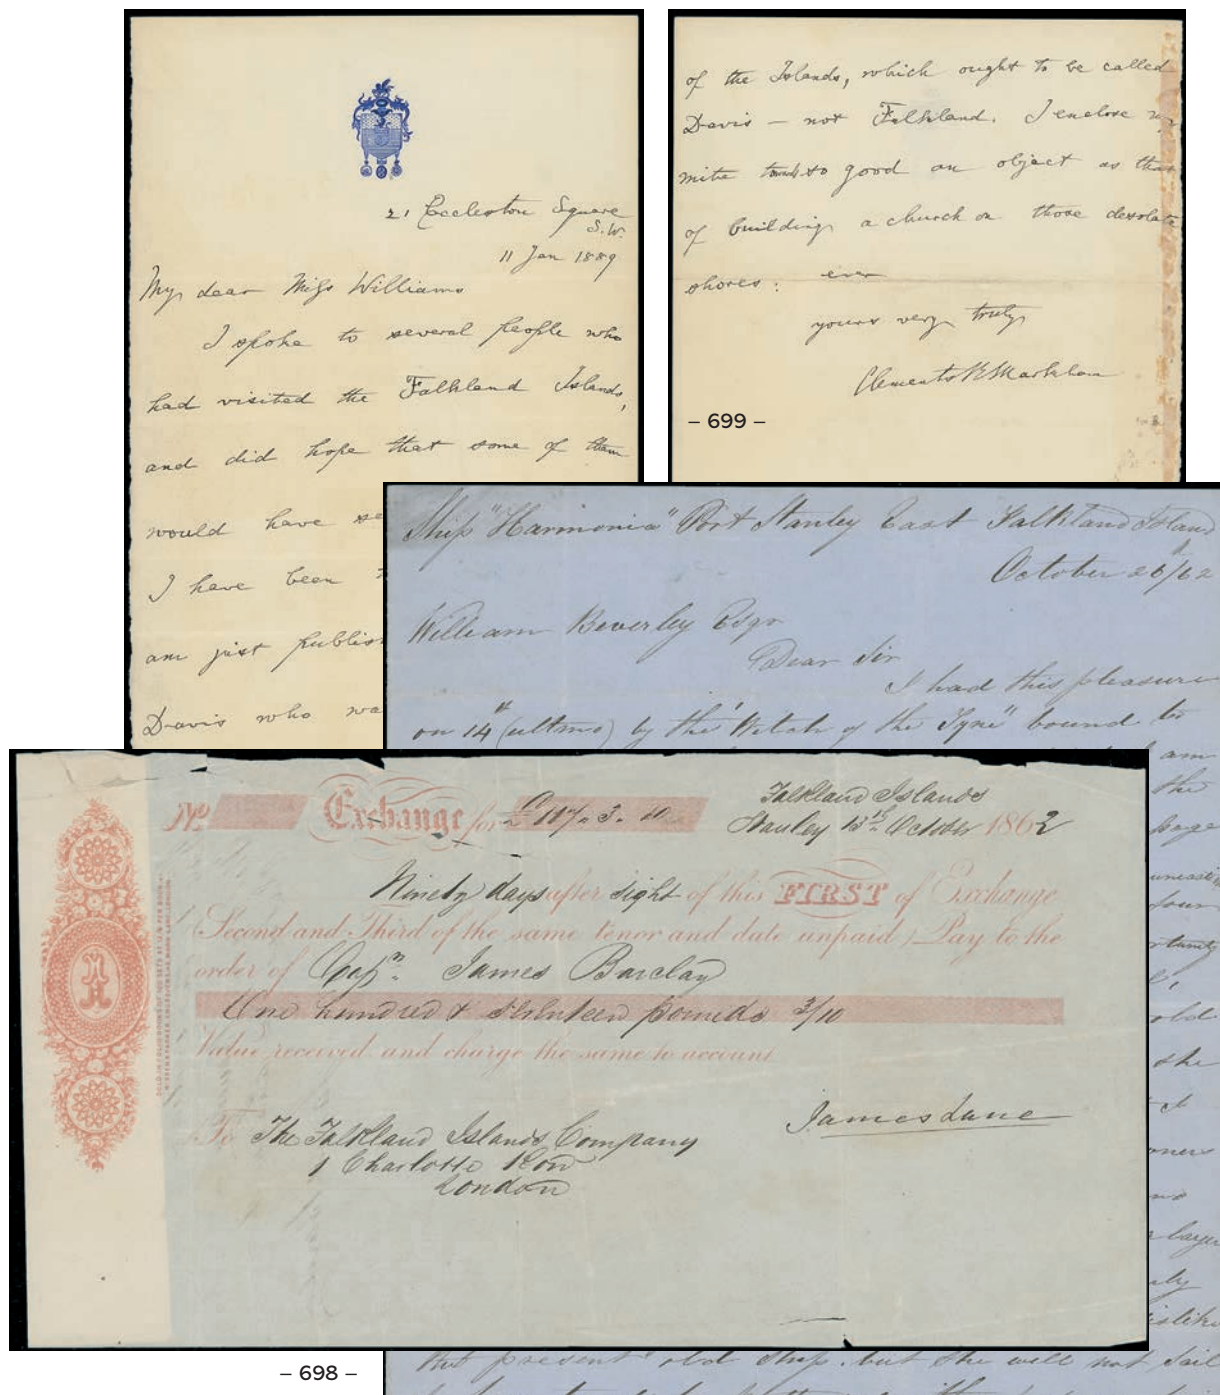 21 Eccleston Square
S.W.
11 Jan 1889
My dear Miss Williams
I spoke to several people who
had visited the Falkland Islands,
and did hope that some of them
would have se
I have been
am just publis
Davis who wa
of the Islands, which ought to be called
Davis — not Falkland. I enclose my
mite towards so good an object as that
of building a church on those desolate
shores:
ever
yours very truly
Clements R Markham
– 699 –
Ship "Harmonia" Port Stanley East Falkland Island
October 26/62
William Beverley Esqr
Dear Sir
I had this pleasure
on 14th (ultmo) by the "Witch of the Tyne" bound to
am
the
page
uneasi
four
rtunity
old
she
mers
no
large
ely
islike
present old ship. but she will not sail
No Exchange for £117.. 3. 10
Falkland Islands
Stanley 13th October 1862
Ninety days after sight of this FIRST of Exchange
(Second and Third of the same tenor and date unpaid) Pay to the
order of Capn. James Barclay
One hundred & seventeen pounds 3/10
Value received and charge the same to account
To The Falkland Islands Company
1 Charlotte Row
London
James Lane
1
– 698 –